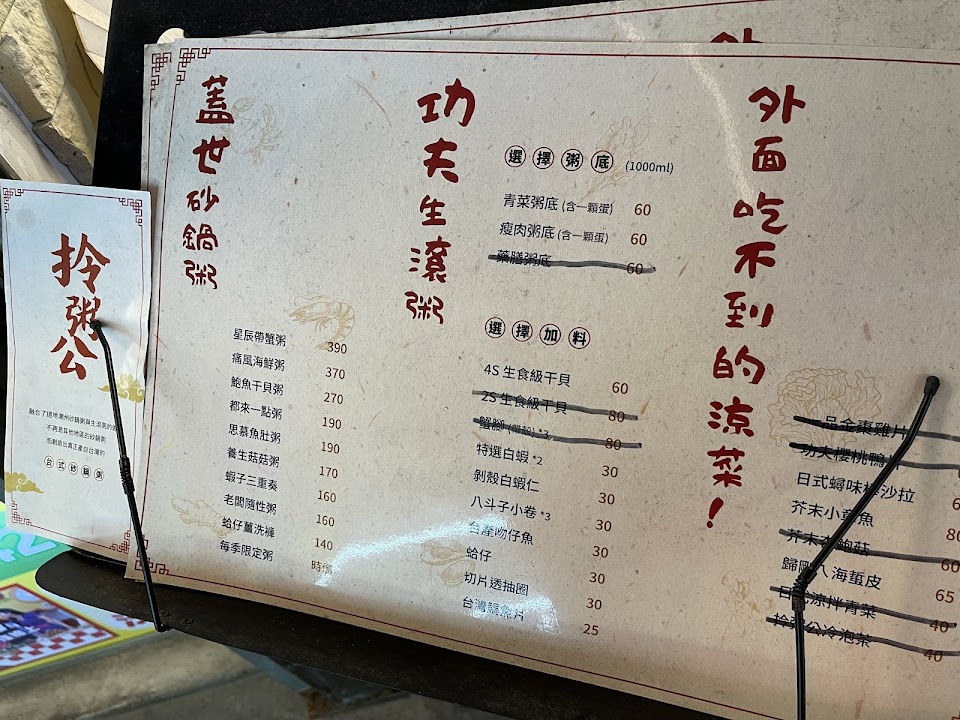 拎粥公
融合了道地潮州砂鍋粥與生滾粥的
不再是其他地區的砂鍋粥
而創造出真正產自台灣的
台式砂鍋粥
蓋世砂鍋粥
星辰帶蟹粥 390
痛風海鮮粥 370
鮑魚干貝粥 270
都來一點粥 190
思慕魚肚粥 190
養生菇菇粥 170
蝦子三重奏 160
老闆隨性粥 160
蛤仔薑洗褲 140
每季限定粥 時價
功夫生滾粥
選擇粥底 (1000ml)
青菜粥底 (含一顆蛋) 60
瘦肉粥底 (含一顆蛋) 60
藥膳粥底 60
選擇加料
4S 生食級干貝 60
2S 生食級干貝 80
蟹腳 80
特選白蝦 *2 30
剝殼白蝦仁 30
八斗子小卷 *3 30
台產吻仔魚 30
蛤仔 30
切片透抽圈 30
台灣鯛魚片 25
外面吃不到的涼菜！
品金棗雞片
功夫櫻桃鴨
日式蟳味棒沙拉
芥末小章魚 80
芥末 鮑菇 60
歸剛 海蜇皮 65
日式涼拌青菜 40
拎粥公冷泡茶 40
外